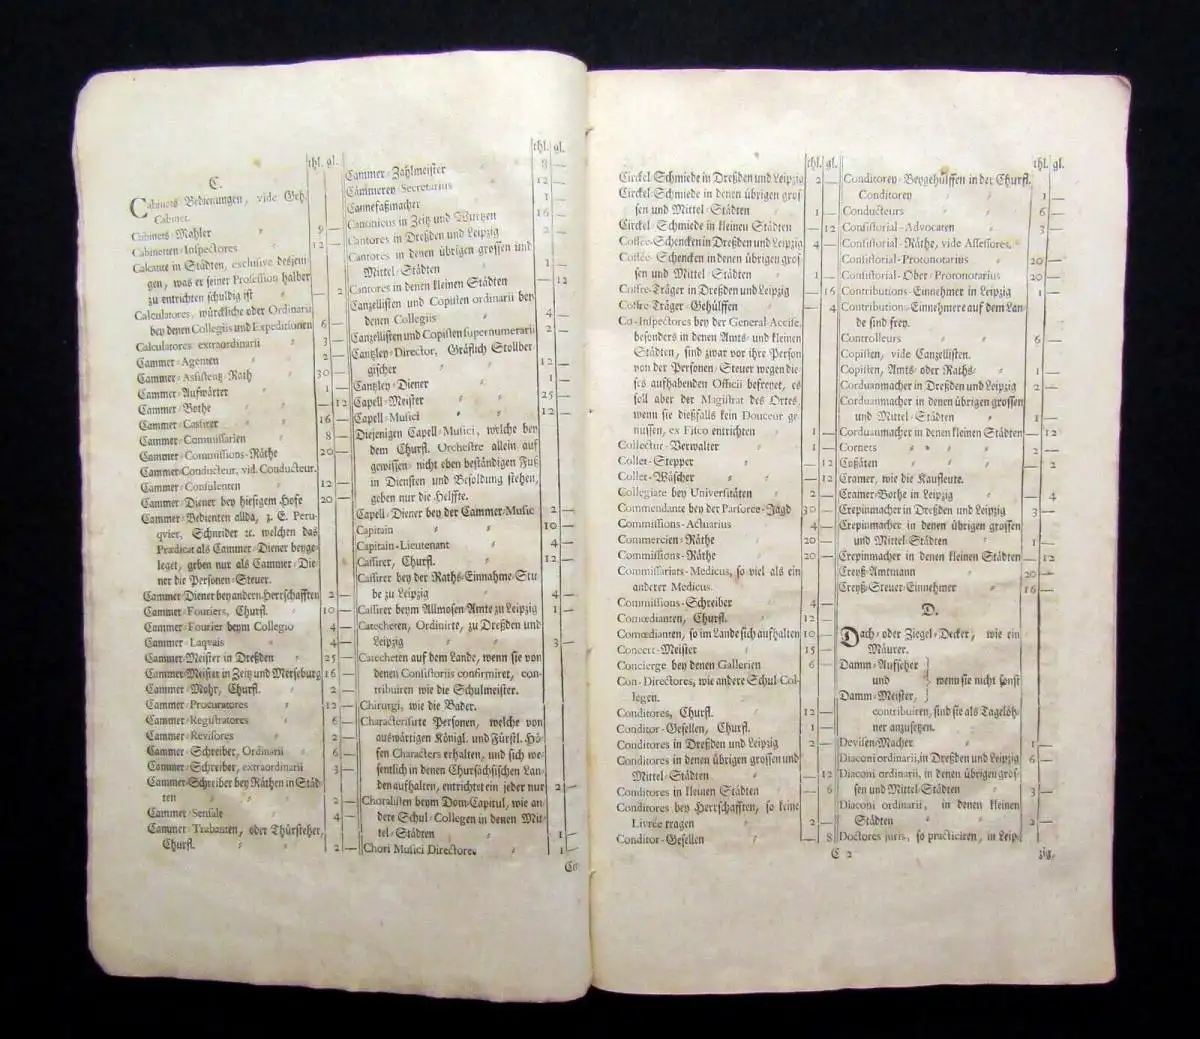 thl. gl.
C.
Cabinets Bedienungen, vide Geh.
Cabinet.
Cabinets-Mahler 9 —
Cabinetten-Inspectores 12 —
Calcante in Städten, exclusive desjeni-
gen, was er seiner Profession halber
zu entrichten schuldig ist — 2
Calculatores, würckliche oder Ordinarii
bey denen Collegiis und Expeditionen 6 —
Calculatores extraordinarii 3 —
Cammer-Agenten 2 —
Cammer-Assistentz-Rath 30 —
Cammer-Aufwärter 1 —
Cammer-Bothe — 12
Cammer-Cassirer 16 —
Cammer-Commissarien 8 —
Cammer-Commissions-Räthe 20 —
Cammer-Conducteur, vid. Conducteur.
Cammer-Consulenten 12 —
Cammer-Diener bey hiesigem Hofe 20 —
Cammer-Bedienten allda, z. E. Peru-
qvier, Schreiber ꝛc. welchen das
Prædicat als Cammer-Diener beyge-
leget, geben nur als Cammer-Die-
ner die Personen-Steuer.
Cammer-Diener bey andern Herrschafften 2 —
Cammer-Fouriers, Churfl. 10 —
Cammer-Fourier beym Collegio 4 —
Cammer-Laqvais 4 —
Cammer-Meister in Dreßden 25 —
Cammer-Meister in Zeitz und Merseburg 16 —
Cammer-Mohr, Churfl. 2 —
Cammer-Procuratores 12 —
Cammer-Registratores 6 —
Cammer-Revisores 2 —
Cammer-Schreiber, Ordinarii 6 —
Cammer-Schreiber, extraordinarii 3 —
Cammer-Schreiber bey Räthen in Städ-
ten 2 —
Cammer-Sensale 4 —
Cammer-Trabanten, oder Thürsteher,
Churfl. 2 —
thl. gl.
Cammer-Zahlmeister 8 —
Cämmerey-Secretarius 12 —
Cannefaßmacher 1 —
Canonicus in Zeitz und Wurtzen 16 —
Cantores in Dreßden und Leipzig 2 —
Cantores in denen übrigen grossen und
Mittel-Städten 1 —
Cantores in denen kleinen Städten — 12
Cantzellisten und Copisten ordinarii bey
denen Collegiis 4 —
Cantzellisten und Copisten supernumerarii 2 —
Cantzley-Director, Gräflich Stollber-
gischer 12 —
Cantzley-Diener 1 —
Capell-Meister 25 —
Capell-Musici 12 —
Diejenigen Capell-Musici, welche bey
dem Churfl. Orchestre allein auf
gewissen nicht eben beständigen Fuß
in Diensten und Besoldung stehen,
geben nur die Helffte.
Capell-Diener bey der Cammer-Music 2 —
Capitain 10 —
Capitain-Lieutenant 4 —
Cassirer, Churfl. 12 —
Cassirer bey der Raths-Einnahme-Stu-
be zu Leipzig 4 —
Cassirer beym Allmosen-Amte zu Leipzig 1 —
Catecheten, Ordinirte, zu Dreßden und
Leipzig 3 —
Catecheten auf dem Lande, wenn sie von
denen Consistoriis confirmiret, con-
tribuiren wie die Schulmeister.
Chirurgi, wie die Bader.
Characterisirte Personen, welche von
auswärtigen Königl. und Fürstl. Hö-
fen Characters erhalten, und sich we-
sentlich in denen Chursächsischen Lan-
den aufhalten, entrichtet ein jeder nur 2 —
Choralisten beym Dom-Capitul, wie an-
dere Schul-Collegen in denen Mit-
tel-Städten 1 —
Chori Musici Directores 1 —
thl. gl.
Circkel-Schmiede in Dreßden und Leipzig 2 —
Circkel-Schmiede in denen übrigen gros-
sen und Mittel-Städten 1 —
Circkel-Schmiede in kleinen Städten — 12
Coffee-Schencken in Dreßden und Leipzig 4 —
Coffée-Schencken in denen übrigen gros-
sen und Mittel-Städten 1 —
Coffre-Träger in Dreßden und Leipzig — 16
Coffre-Träger-Gehülffen — 4
Co-Inspectores bey der General-Accise,
besonders in denen Amts- und kleinen
Städten, sind zwar vor ihre Person
von der Personen-Steuer wegen die-
ses aufhabenden Officii befreyet, es
soll aber der Magistrat des Ortes,
wenn sie dießfalls kein Douceur ge-
nussen, ex Fisco entrichten 1 —
Collectur-Verwalter 1 —
Collet-Stepper — 12
Collet-Wäscher — 12
Collegiate bey Universitäten 2 —
Commendante bey der Parforce-Jagd 30 —
Commissions-Actuarius 4 —
Commercien-Räthe 20 —
Commissions-Räthe 20 —
Commissariats-Medicus, so viel als ein
anderer Medicus.
Commissions-Schreiber 4 —
Comœdianten, Churfl. 12 —
Comœdianten, so im Lande sich aufhalten 10 —
Concert-Meister 15 —
Concierge bey denen Gallerien 6 —
Con-Directores, wie andere Schul-Col-
legen.
Conditores, Churfl. 12 —
Conditor-Gesellen, Churfl. 1 —
Conditores in Dreßden und Leipzig 2 —
Conditores in denen übrigen grossen und
Mittel-Städten — 12
Conditores in kleinen Städten — 6
Conditores bey Herrschafften, so keine
Livrée tragen 2 —
Conditor-Gesellen — 8
thl. gl.
Conditorey-Beygehülffen in der Churfl.
Conditorey 1 —
Conducteurs 6 —
Consistorial-Advocaten 3 —
Consistorial-Räthe, vide Assessores.
Consistorial-Protonotarius 20 —
Consistorial-Ober-Protonotarius 20 —
Contributions-Einnehmer in Leipzig 1 —
Contributions-Einnehmere auf dem Lan-
de sind frey.
Controlleurs 6 —
Copisten, vide Canzellisten.
Copisten, Amts- oder Raths- 1 —
Corduanmacher in Dreßden und Leipzig 2 —
Corduanmacher in denen übrigen grossen
und Mittel-Städten 1 —
Corduanmacher in denen kleinen Städten — 12
Cornets 2 —
Coßäten — 2
Cramer, wie die Kaufleute.
Cramer-Bothe in Leipzig — 4
Crepinmacher in Dreßden und Leipzig 3 —
Crepinmacher in denen übrigen grossen
und Mittel-Städten 1 —
Crepinmacher in denen kleinen Städten — 12
Creyß-Amtmann 20 —
Creyß-Steuer-Einnehmer 16 —
D.
Dach- oder Ziegel-Decker, wie ein
Mäurer.
Damm-Aufseher
und wenn sie nicht sonst
Damm-Meister,
contribuiren, sind sie als Tagelöh-
ner anzusetzen.
Devisen-Macher 1 —
Diaconi ordinarii, in Dreßden und Leipzig 6 —
Diaconi ordinarii, in denen übrigen gros-
sen und Mittel-Städten 3 —
Diaconi ordinarii, in denen kleinen
Städten 2 —
Doctores juris, so practiciren, in Leip-
C 2 zig,